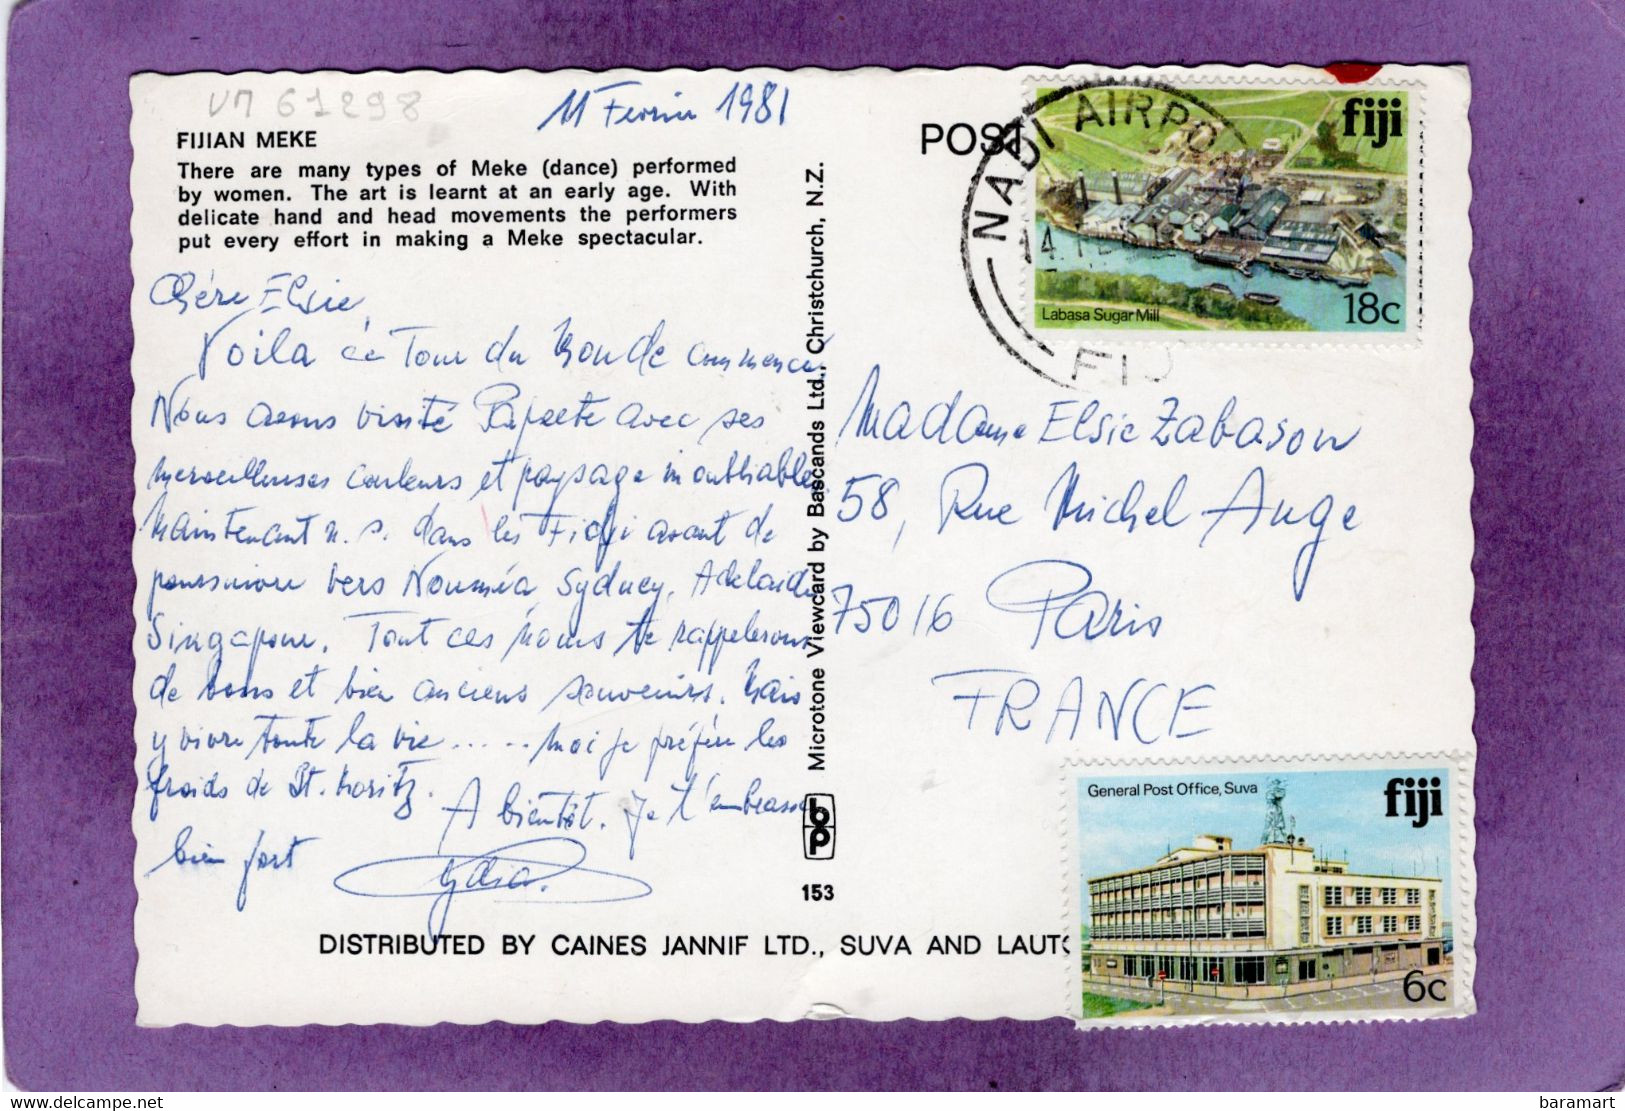 V7 61298
11 Fevrier 1981
FIJIAN MEKE
There are many types of Meke (dance) performed
by women. The art is learnt at an early age. With
delicate hand and head movements the performers
put every effort in making a Meke spectacular.
Chère Elsie,
Voilà ce Tour du Monde commencé
Nous avons visité Papeete avec ses
merveilleuses couleurs et paysage inoubliables
Maintenant n. s. dans les Fidji avant de
poursuivre vers Nouméa, Sydney, Adelaide
Singapour. Tout ces noms te rappelerons
de bons et bien anciens souvenirs. Mais
y vivre toute la vie ..... moi je préfère les
froids de St. Moritz.
A bientôt. Je t'embrasse
bien fort
Lydia.
Microtone Viewcard by Bascands Ltd., Christchurch, N.Z.
bp
153
DISTRIBUTED BY CAINES JANNIF LTD., SUVA AND LAUTO
POST
NADI AIRPO
FIJ
fiji
Labasa Sugar Mill
18c
Madame Elsie Zabasow
58, Rue Michel Ange
75016 Paris
FRANCE
General Post Office, Suva
fiji
6c
delcampe.net
baramart